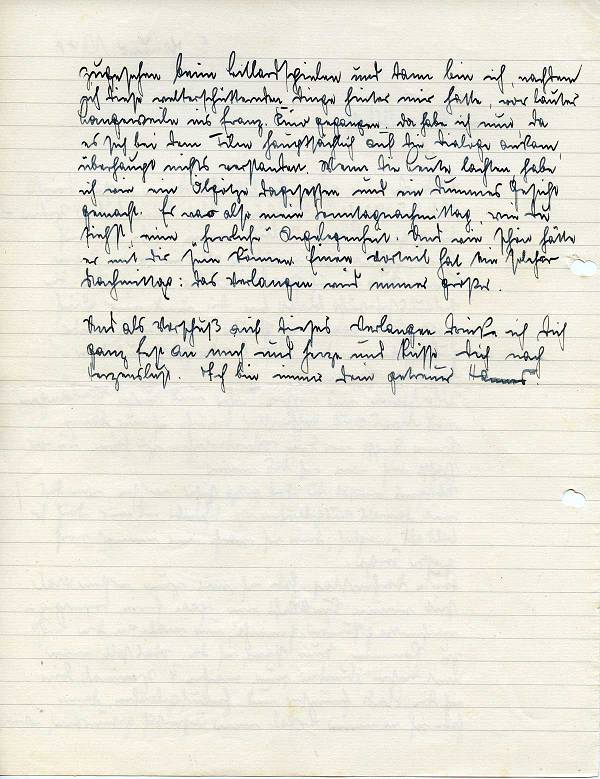 zugesehen beim Billardspielen und dann bin ich, nachdem
ich diese welterschütternden Dinge hinter mir hatte, vor lauter
Langerweile ins franz. Kino gegangen. Da habe ich nun, da
es sich bei dem Film hauptsächlich auf die Dialoge ankam,
überhaupt nichts verstanden. Wenn die Leute lachten, habe
ich wie ein Ölgötze dagesessen und ein dummes Gesicht
gemacht. Es war also mein Sonntagnachmittag, wie Du
siehst, eine "herrliche" Angelegenheit. Und wie schön hätte
er mit Dir sein können. Einen Vorteil hat ein solcher
Nachmittag: das Verlangen wird immer größer.
Und als Vorschuß auf dieses Verlangen drücke ich Dich
ganz fest an mich und herze und küsse Dich nach
Herzenslust. Ich bin immer Dein getreuer Hannes.